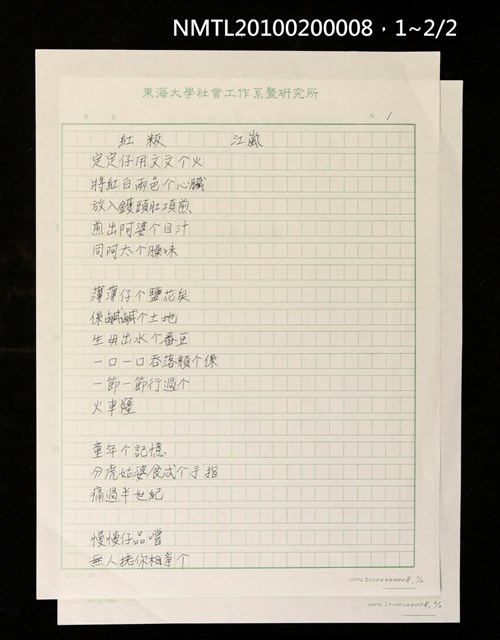 NMTL20100200008，1~2/2
東海大學社會工作系暨研究所
№ 1
紅粄 江嵐
定定仔用文文个火
將紅白兩色个心臟
放入鑊頭肚項煎
煎出阿婆个目汁
同阿太个臊味
薄薄仔个鹽花矣
係鹹鹹个土地
生毋出水个番豆
一口一口吞落頷个係
一節一節行過个
火車隆
童年个記憶
分虎姑婆食忒个手指
痛過半世紀
慢慢仔品嚐
無人摎你相爭个
NMTL20100200008, 1/2
NMTL20100200008, 2/2